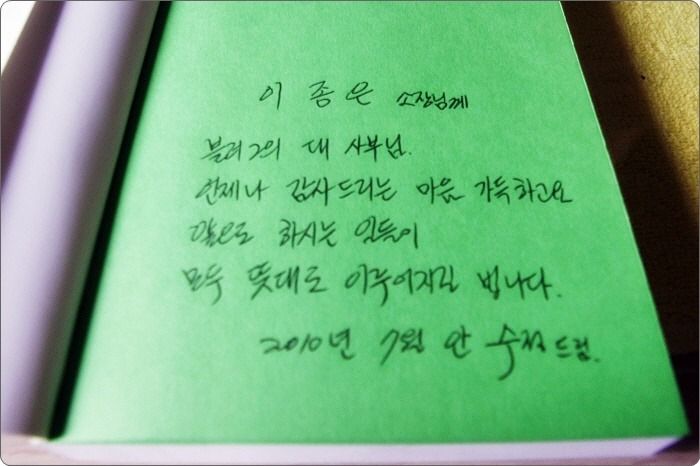 이 종 은 소장님께
블러그의 대 사부님.
언제나 감사드리는 마음 가득하고요
앞으로 하시는 일들이
모두 뜻대로 이루어지길 빕니다.
2010년 7월 안 수정 드림.